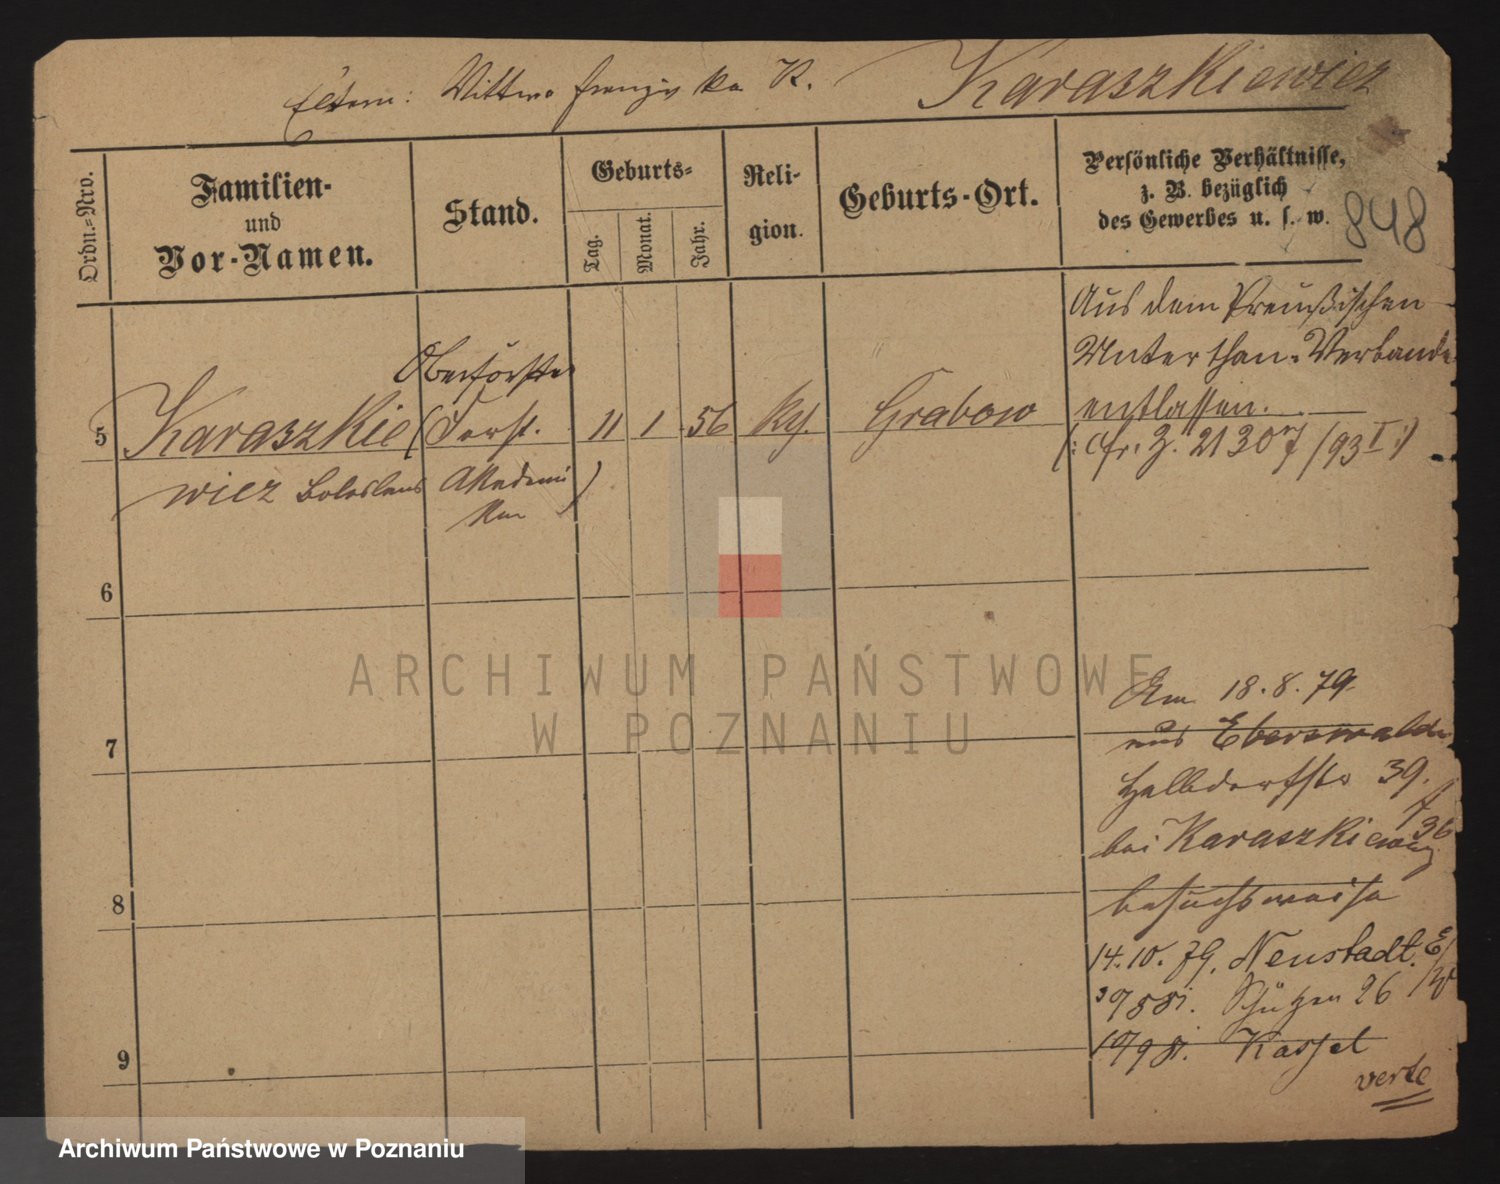 Eltern: Wittwe Franziska K. Karaszkiewicz
Ordn.-Nro.
Familien-
und
Vor-Namen.
Stand.
Geburts-
Tag.
Monat.
Jahr.
Reli-
gion.
Geburts-Ort.
Persönliche Verhältnisse,
z. B. bezüglich
des Gewerbes u. s. w.
848
Aus dem Preußischen
Unterthan-Verbande
entlassen.
(: cfr. Z. 2130 /93 I :)
Oberförster
5 Karaszkie (Forst. 11 1 56 Kth. Grabow
wicz Boleslaus Akademi
ker)
6
7
8
9
Am 18.8.79
aus Eberswalde
39.
bei Karaszkiewicz
besuchsweise
14.10.79. Neustadt E/W
Schützen 26
Kassel
verte
ARCHIWUM PAŃSTWOWE
W POZNANIU
Archiwum Państwowe w Poznaniu